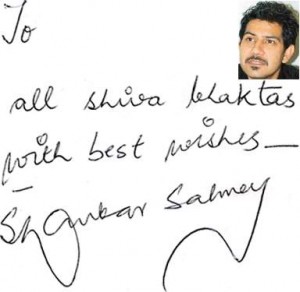 To
all shiva bhaktas
with best wishes
Shankar Sahney